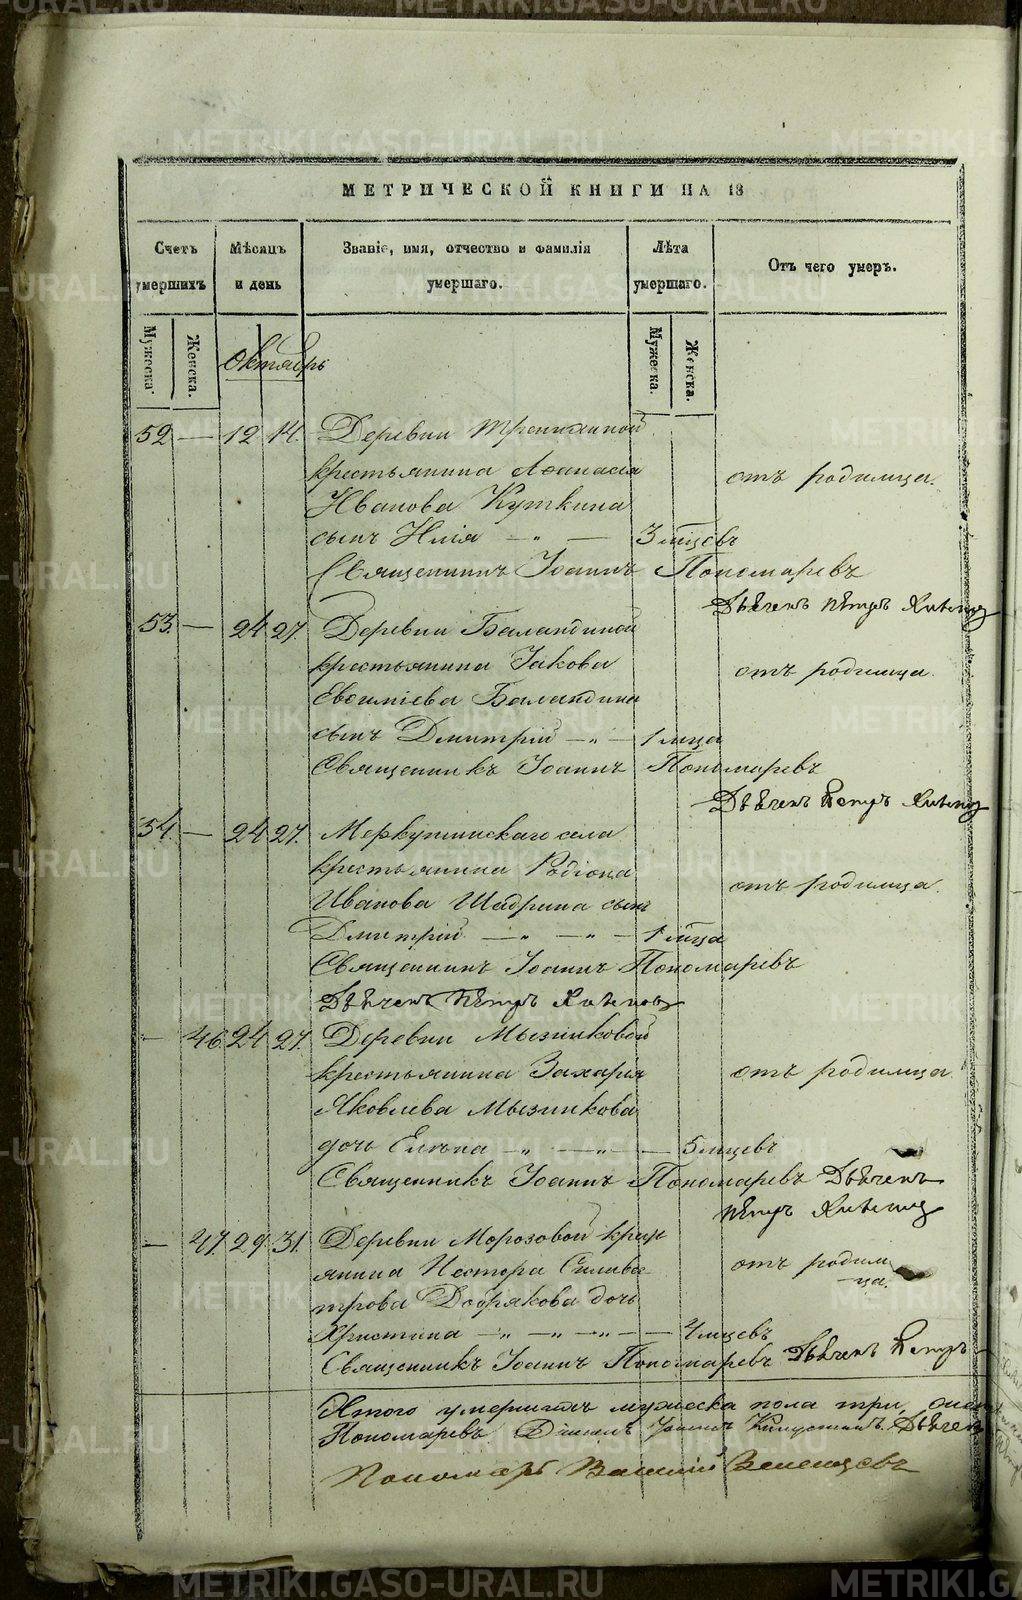 МЕТРИЧЕСКОЙ КНИГИ НА 18
Счетъ умершихъ
Мѣсяцъ и день
Званіе, имя, отчество и фамилія умершаго.
Лѣта умершаго.
Отъ чего умеръ.
Мужеска.
Женска.
Мужеска.
Женска.
Октябрь
52 — 12 14. Деревни
крестьянина Аѳанасія отъ родимца.
Иванова Куткина
сынъ Илія — „ — 3 мцевъ
Священникъ Іоаннъ Пономаревъ
Дьячекъ Петръ
53. — 24 27. Деревни Баландиной
крестьянина Іакова отъ родимца.
Евѳиміева Баландина
сынъ Дмитрій — „ — 1 мца
Священникъ Іоаннъ Пономаревъ
Дьячекъ Петръ
54. — 24 27. Меркушинскаго села
крестьянина Родіона отъ родимца.
Иванова Шадрина сынъ
Дмитрій — „ — „ — 1 мца
Священникъ Іоаннъ Пономаревъ
Дьячекъ Петръ
— 46. 24 27. Деревни Мызниковой
крестьянина Захарія отъ родимца.
Яковлева Мызникова
дочь Елена — „ — „ — 5 мцевъ
Священникъ Іоаннъ Пономаревъ Дьячекъ
Петръ
— 47. 29. 31. Деревни Морозовой крест
янина Нестора Сильве отъ родим
ца.
трова Добрякова дочь
Христина — „ — „ — „ — 4 мцевъ
Священникъ Іоаннъ Пономаревъ Дьячекъ Петръ
Итого умершихъ мужеска пола три,
Пономаревъ Діаконъ Іоаннъ Дьячек
Пономарь Василій